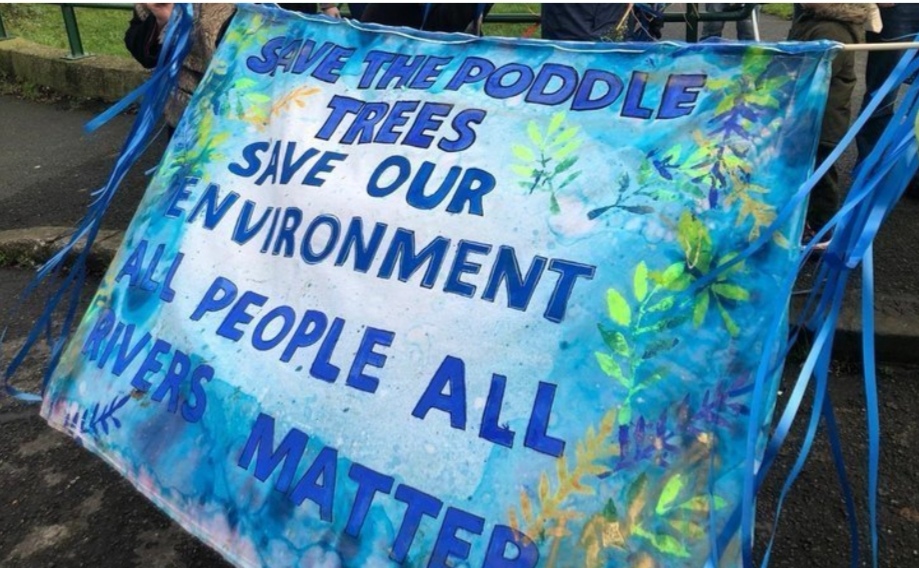 SAVE THE PODDLE
TREES
SAVE OUR
ENVIRONMENT
ALL PEOPLE ALL
RIVERS MATTER